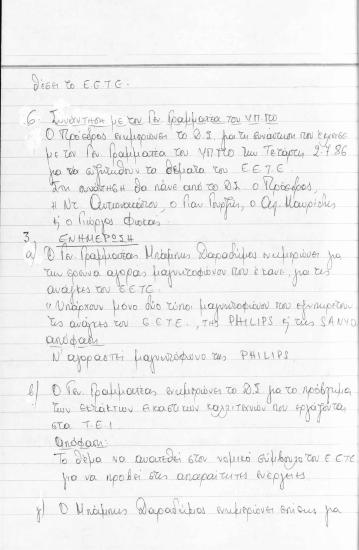 θέσει το Ε.Ε.Τ.Ε.
6. Συνάντηση με τον Γεν. Γραμματέα του ΥΠ.ΠΟ
Ο Πρόεδρος ενημερώνει το Δ.Σ. για τη συνάντηση που
με τον Γεν. Γραμματέα του ΥΠ.ΠΟ την Τετάρτη 2.7.86
για να συζητηθούν τα θέματα του Ε.Ε.Τ.Ε.
Στη συνάντηση θα πάνε από το Δ.Σ. ο Πρόεδρος,
η Ντ. , ο Γιαν. , ο Αρ.
ή ο Γιώργος Φωκάς.
3. ΕΝΗΜΕΡΩΣΗ
α) Ο Γεν. Γραμματέας Μπάμπης Δαραδήμος ενημερώνει για
την έρευνα αγοράς μαγνητοφώνου που έκανε, για τις
ανάγκες του Ε.Ε.Τ.Ε.
"Υπάρχουν μόνο δύο τύποι μαγνητοφώνου που εξυπηρετούν
τις ανάγκες του Ε.Ε.Τ.Ε., της PHILIPS ή της SANYO
απόφαση
Ν' αγοραστεί μαγνητόφωνο της PHILIPS
β) Ο Γεν. Γραμματέας ενημερώνει το Δ.Σ για το πρόβλημα
των εκτάκτων εικαστικών καλλιτεχνών που εργάζονται
στα Τ.Ε.Ι
Απόφαση:
Το θέμα να ανατεθεί στον νομικό σύμβουλο του Ε.Ε.Τ.Ε.
για να προβεί στις απαραίτητες ενέργειες
γ) Ο Μπάμπης Δαραδήμος ενημερώνει επίσης για